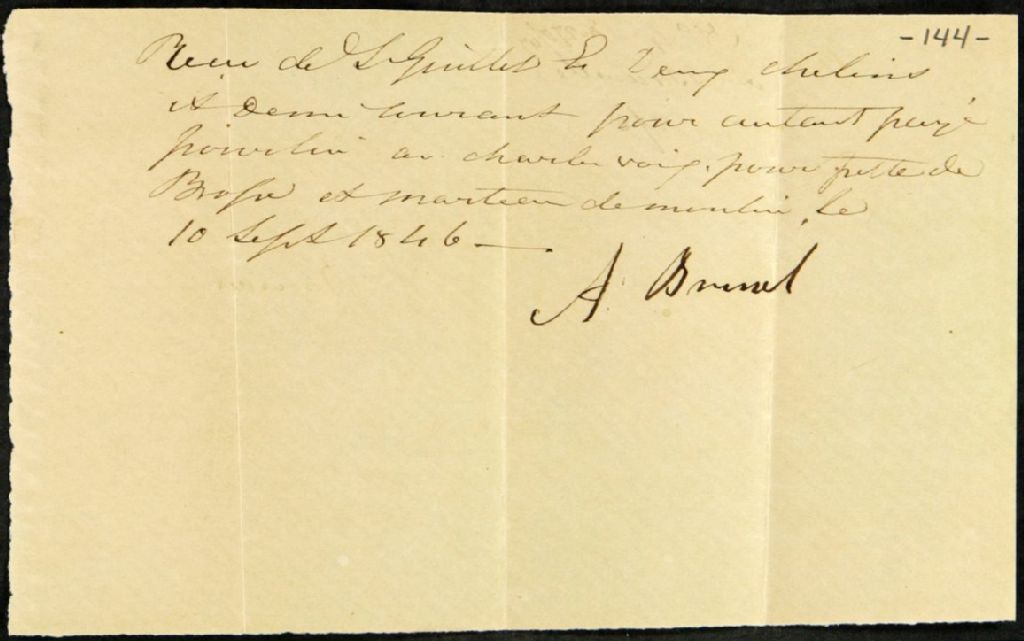 -144-
Recu de L Guillet Er Deux chelins
et Demi Courant pour autant payé
pour lui au charle voig pour fette de
Brosse et marteau de moulin, le
10 Sept 1846 —
A. Brunel